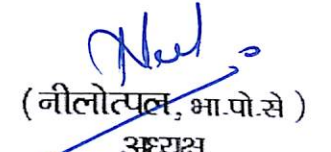 (नीलोत्पल, भा.पो.से )
अध्यक्ष